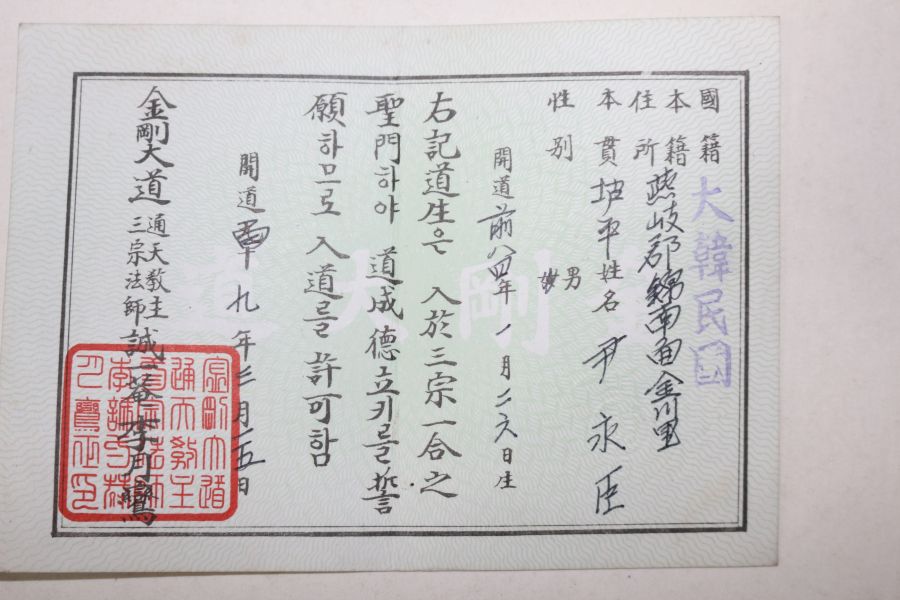 國籍 大韓民國
本籍
住所 燕岐郡錦南面金川里
本貫 坡平 姓名 尹永臣
性別 男
開道前八四年一月二六日生
右記道生은 入於三宗一合之
聖門하야 道成德立키를 誓
願하므로 入道를 許可함
開道 九年三月一五日
金剛大道 通天教主
三宗法師 誠菴 李月鸞
金剛大道